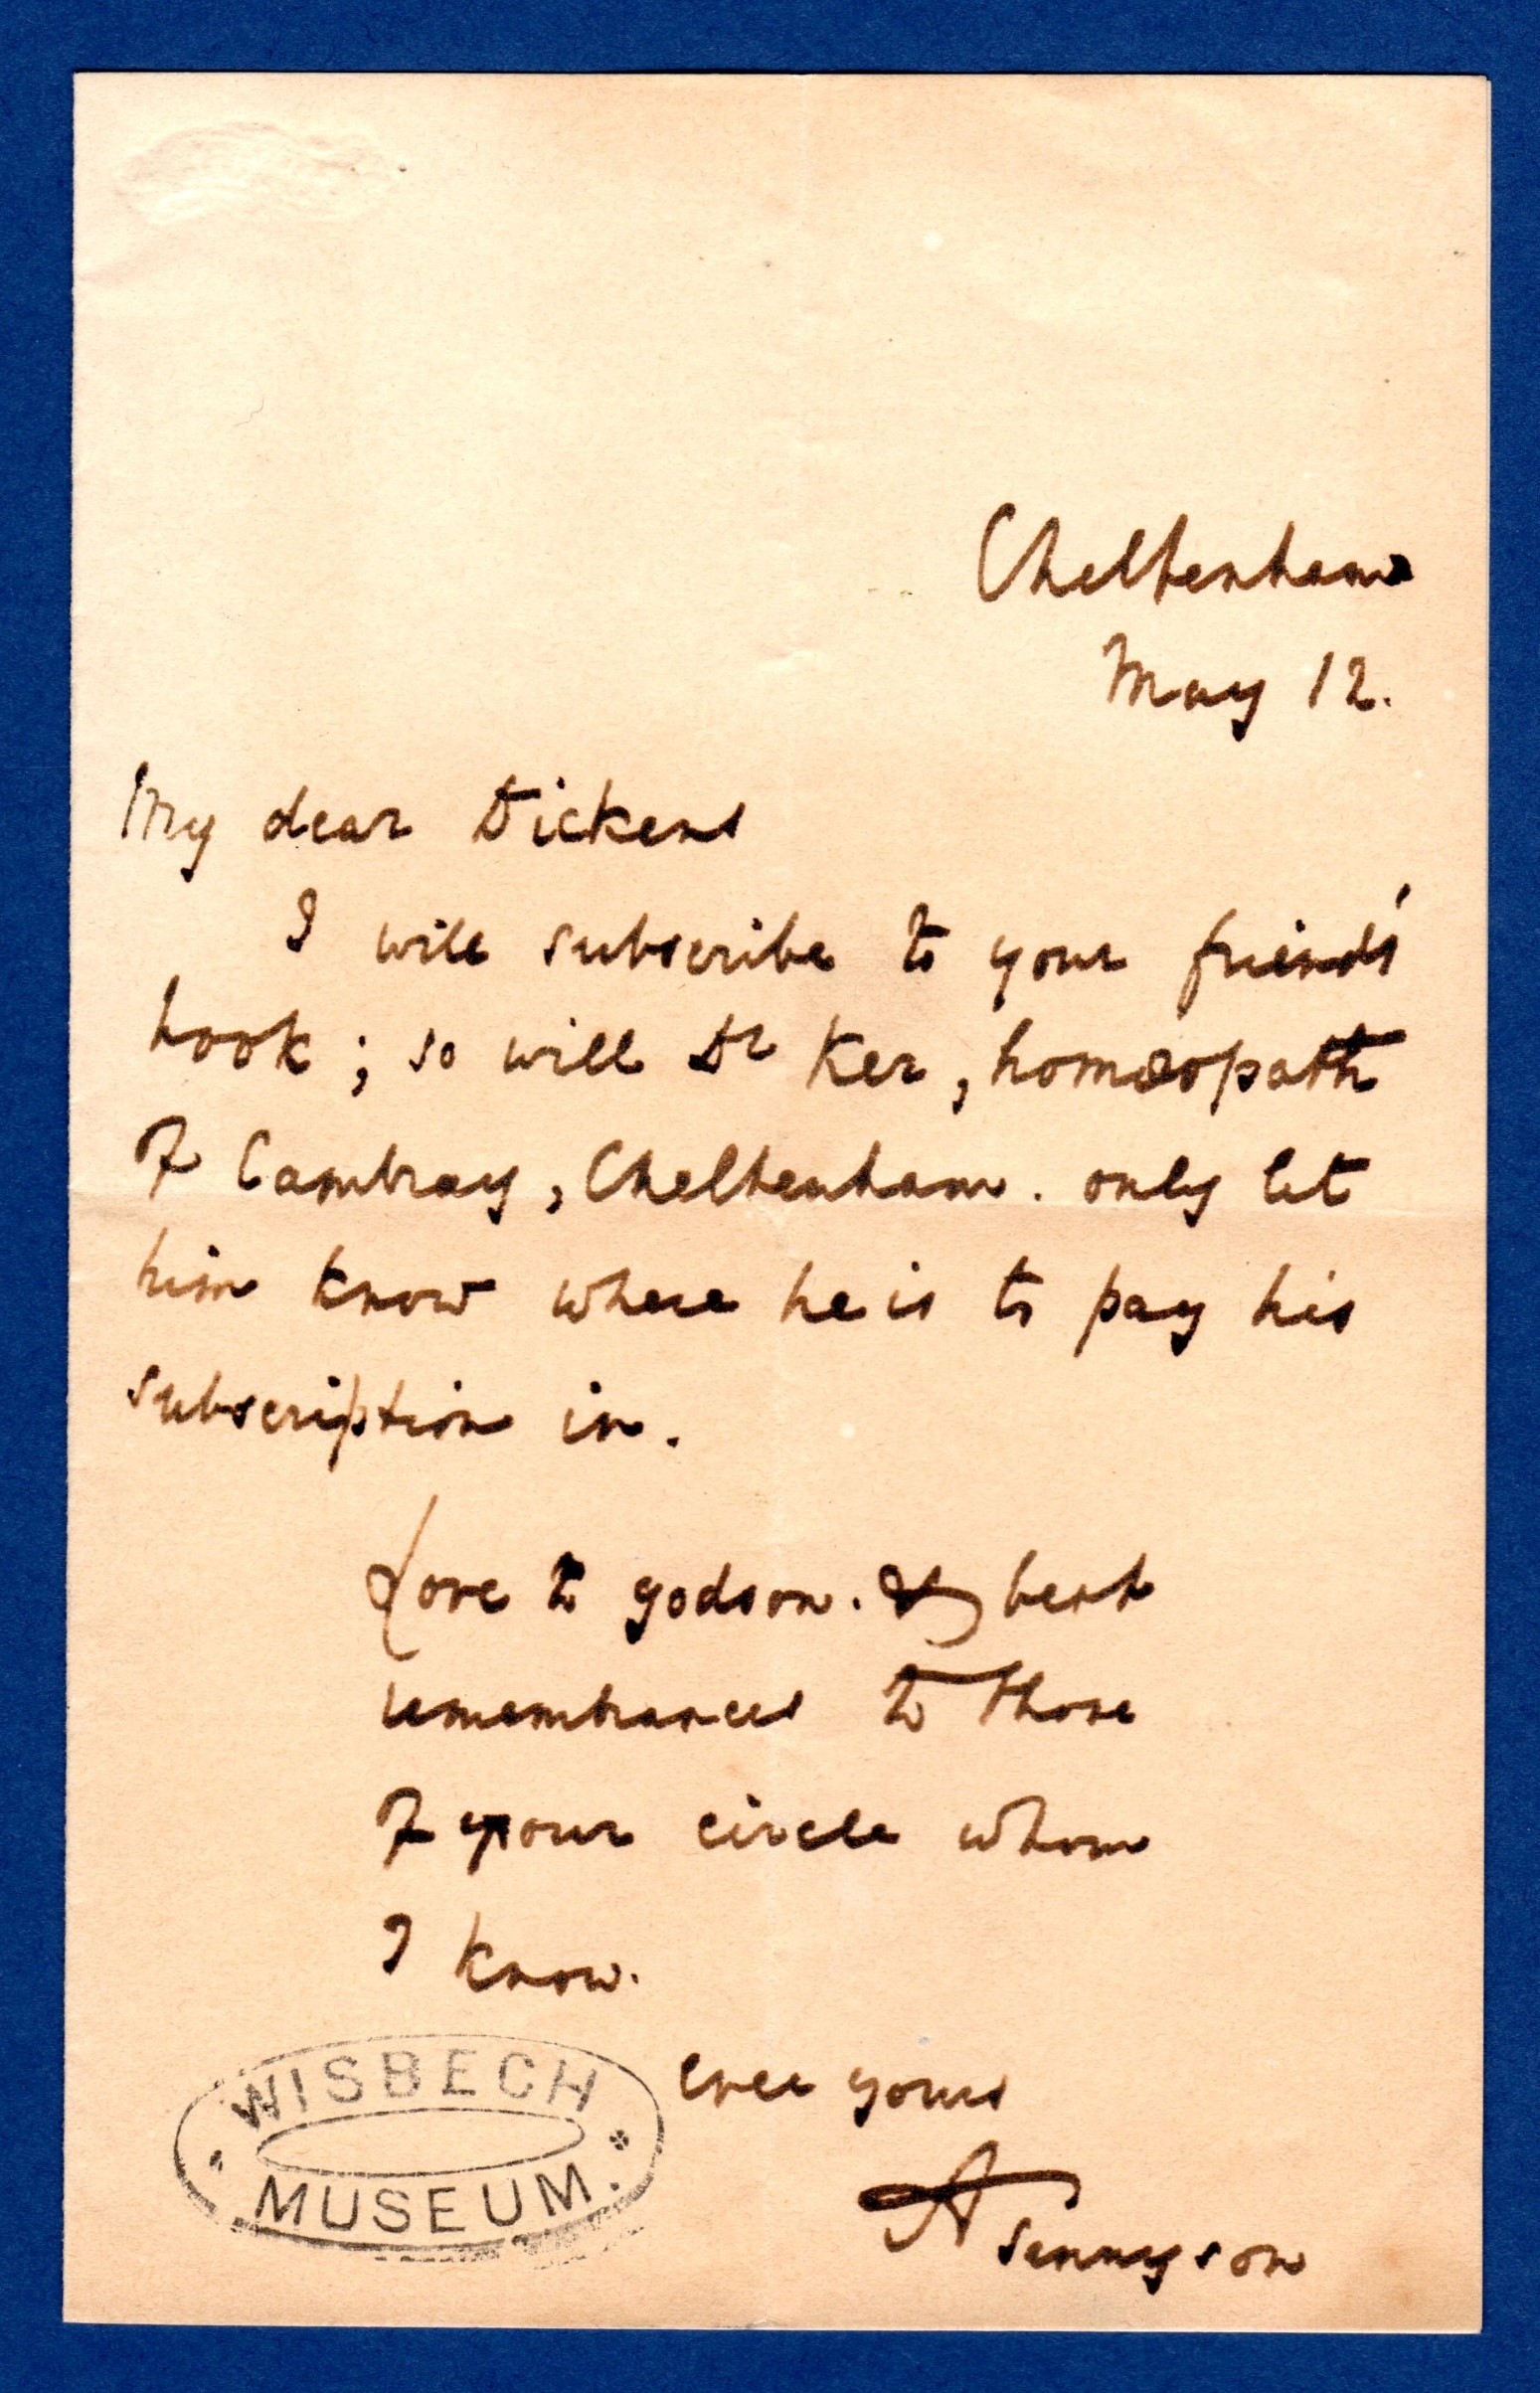 Cheltenham
May 12.
My dear Dickens
I will subscribe to your friend's
book; so will Dr Ker, homœopath
of Cambray, Cheltenham. only let
him know where he is to pay his
subscription in.
Love to godson. & best
remembrances to those
of your circle whom
I know.
ever yours
A Tennyson
WISBECH
MUSEUM.